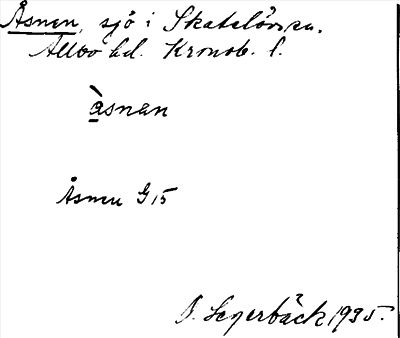 Åsnen, sjö i Skatelövs sn.
Allbo hd. Kronob. l.
àsnan
Åsnen G15
B. Segerbäck 1935.